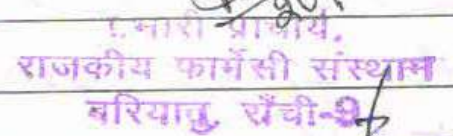 प्रभारी प्राचार्य,
राजकीय फार्मेसी संस्थान
बरियातु, राँची-9